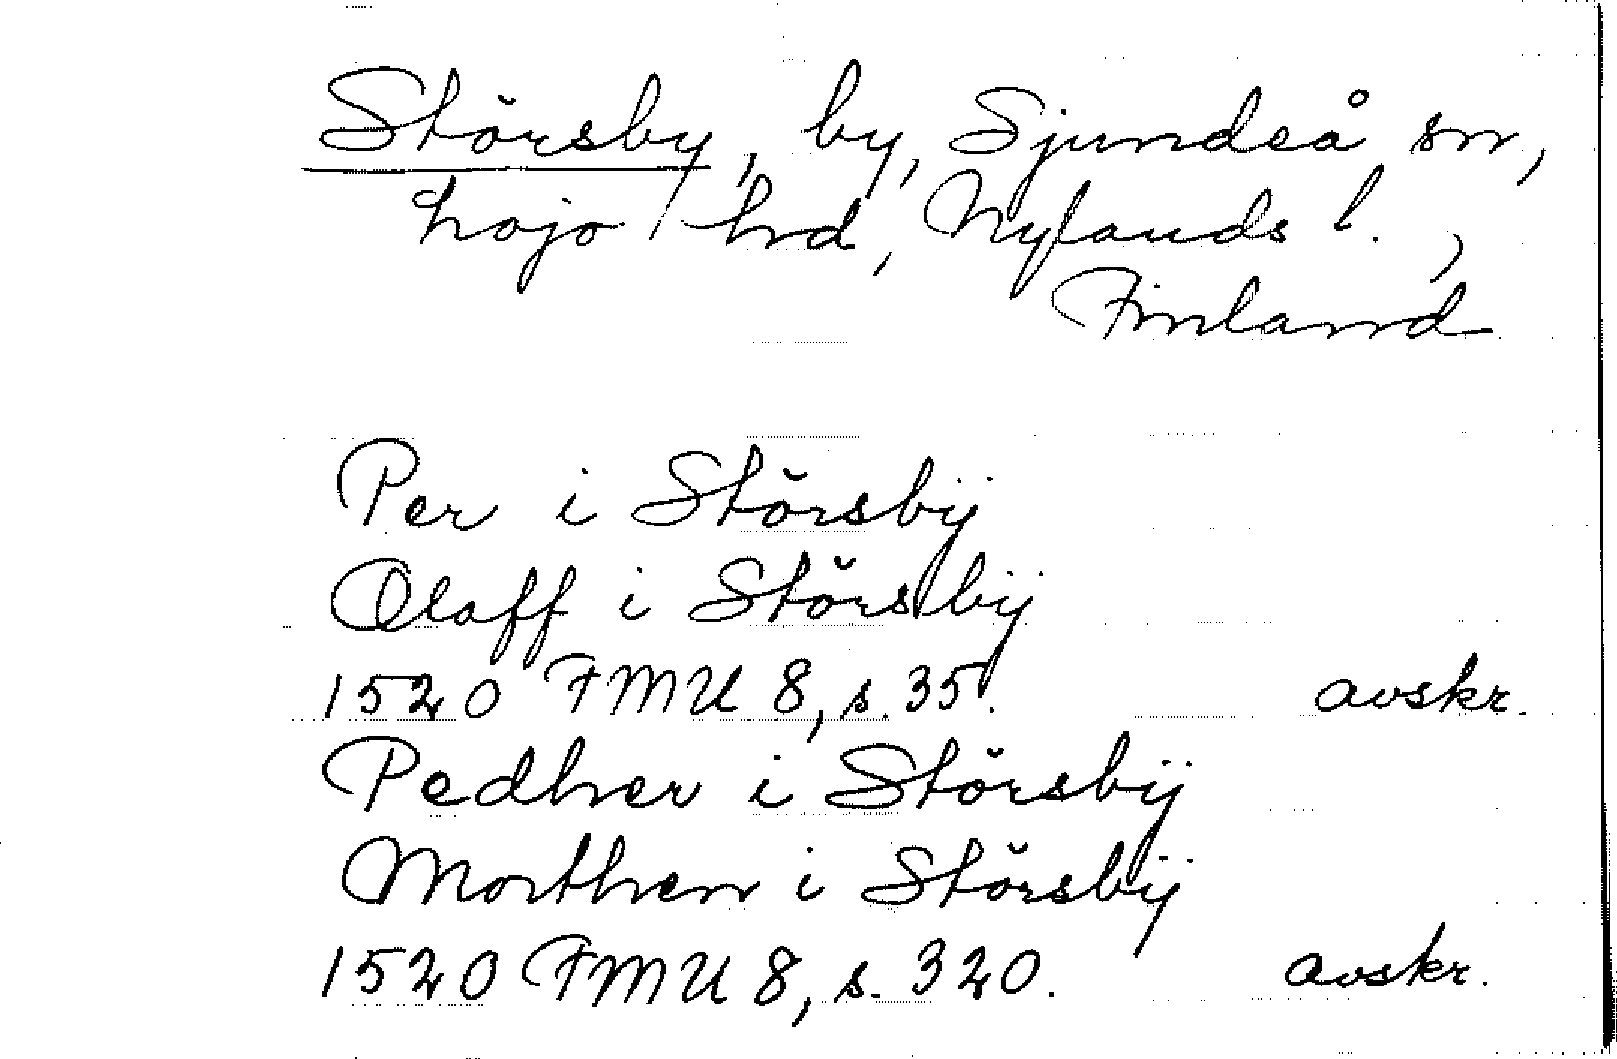 Störsby, by, Sjundeå sn,
Lojo hrd, Nylands l.,
Finland
Per i Störsbÿ
Olaff i Störsbÿ
1520 FMU 8, s. 35. avskr.
Pedher i Störsbÿ
Morthen i Störsbÿ
1520 FMU 8, s. 320. avskr.